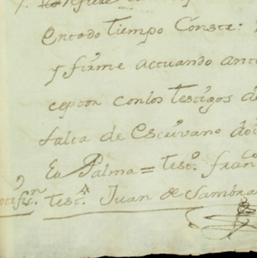 en todo Tiempo Conste:
y firme actuando ante
ceptor con los Testigos de
falta de Escrivano do
En Palma = Test.º fran
Test.º Juan de Sambra